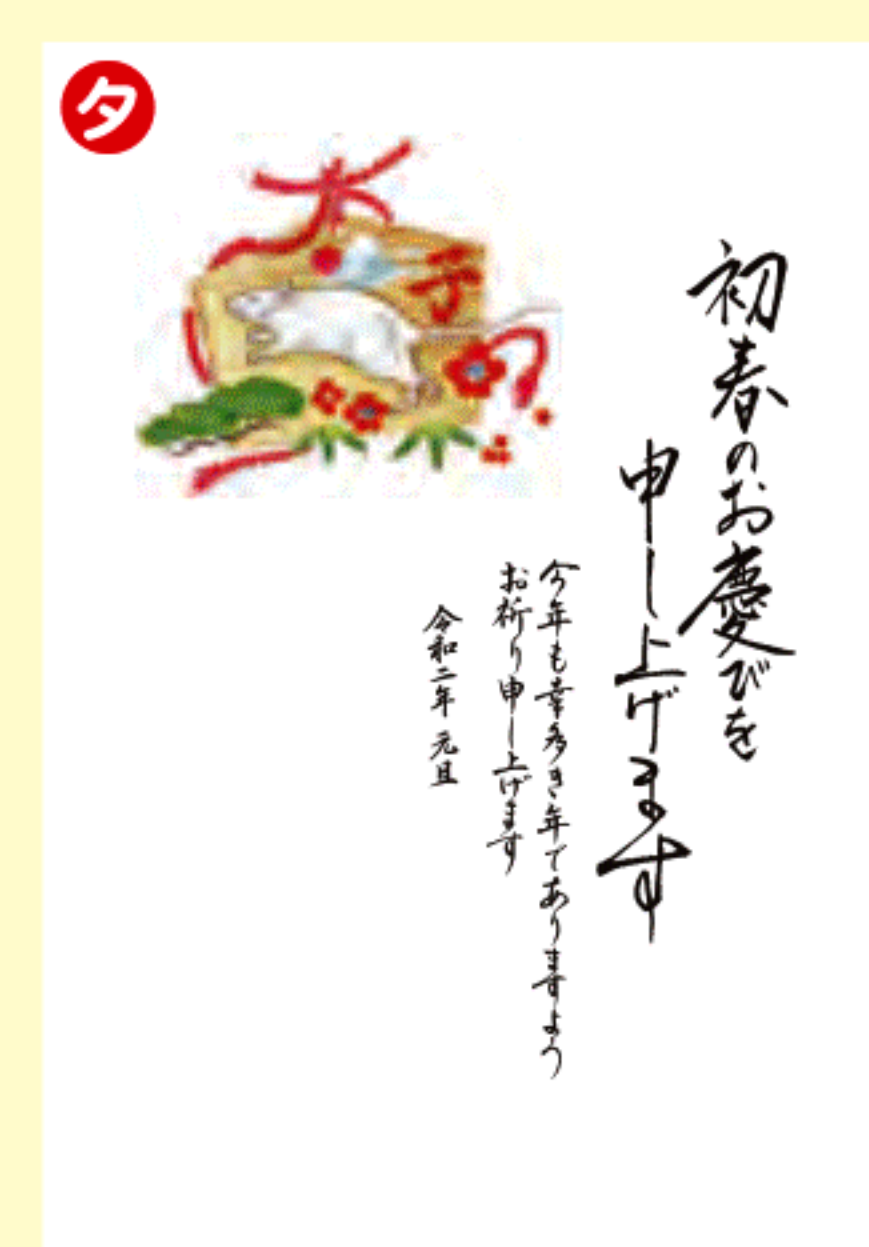 タ
子
初春のお慶びを
申し上げます
今年も幸多き年でありますよう
お祈り申し上げます
令和二年 元旦